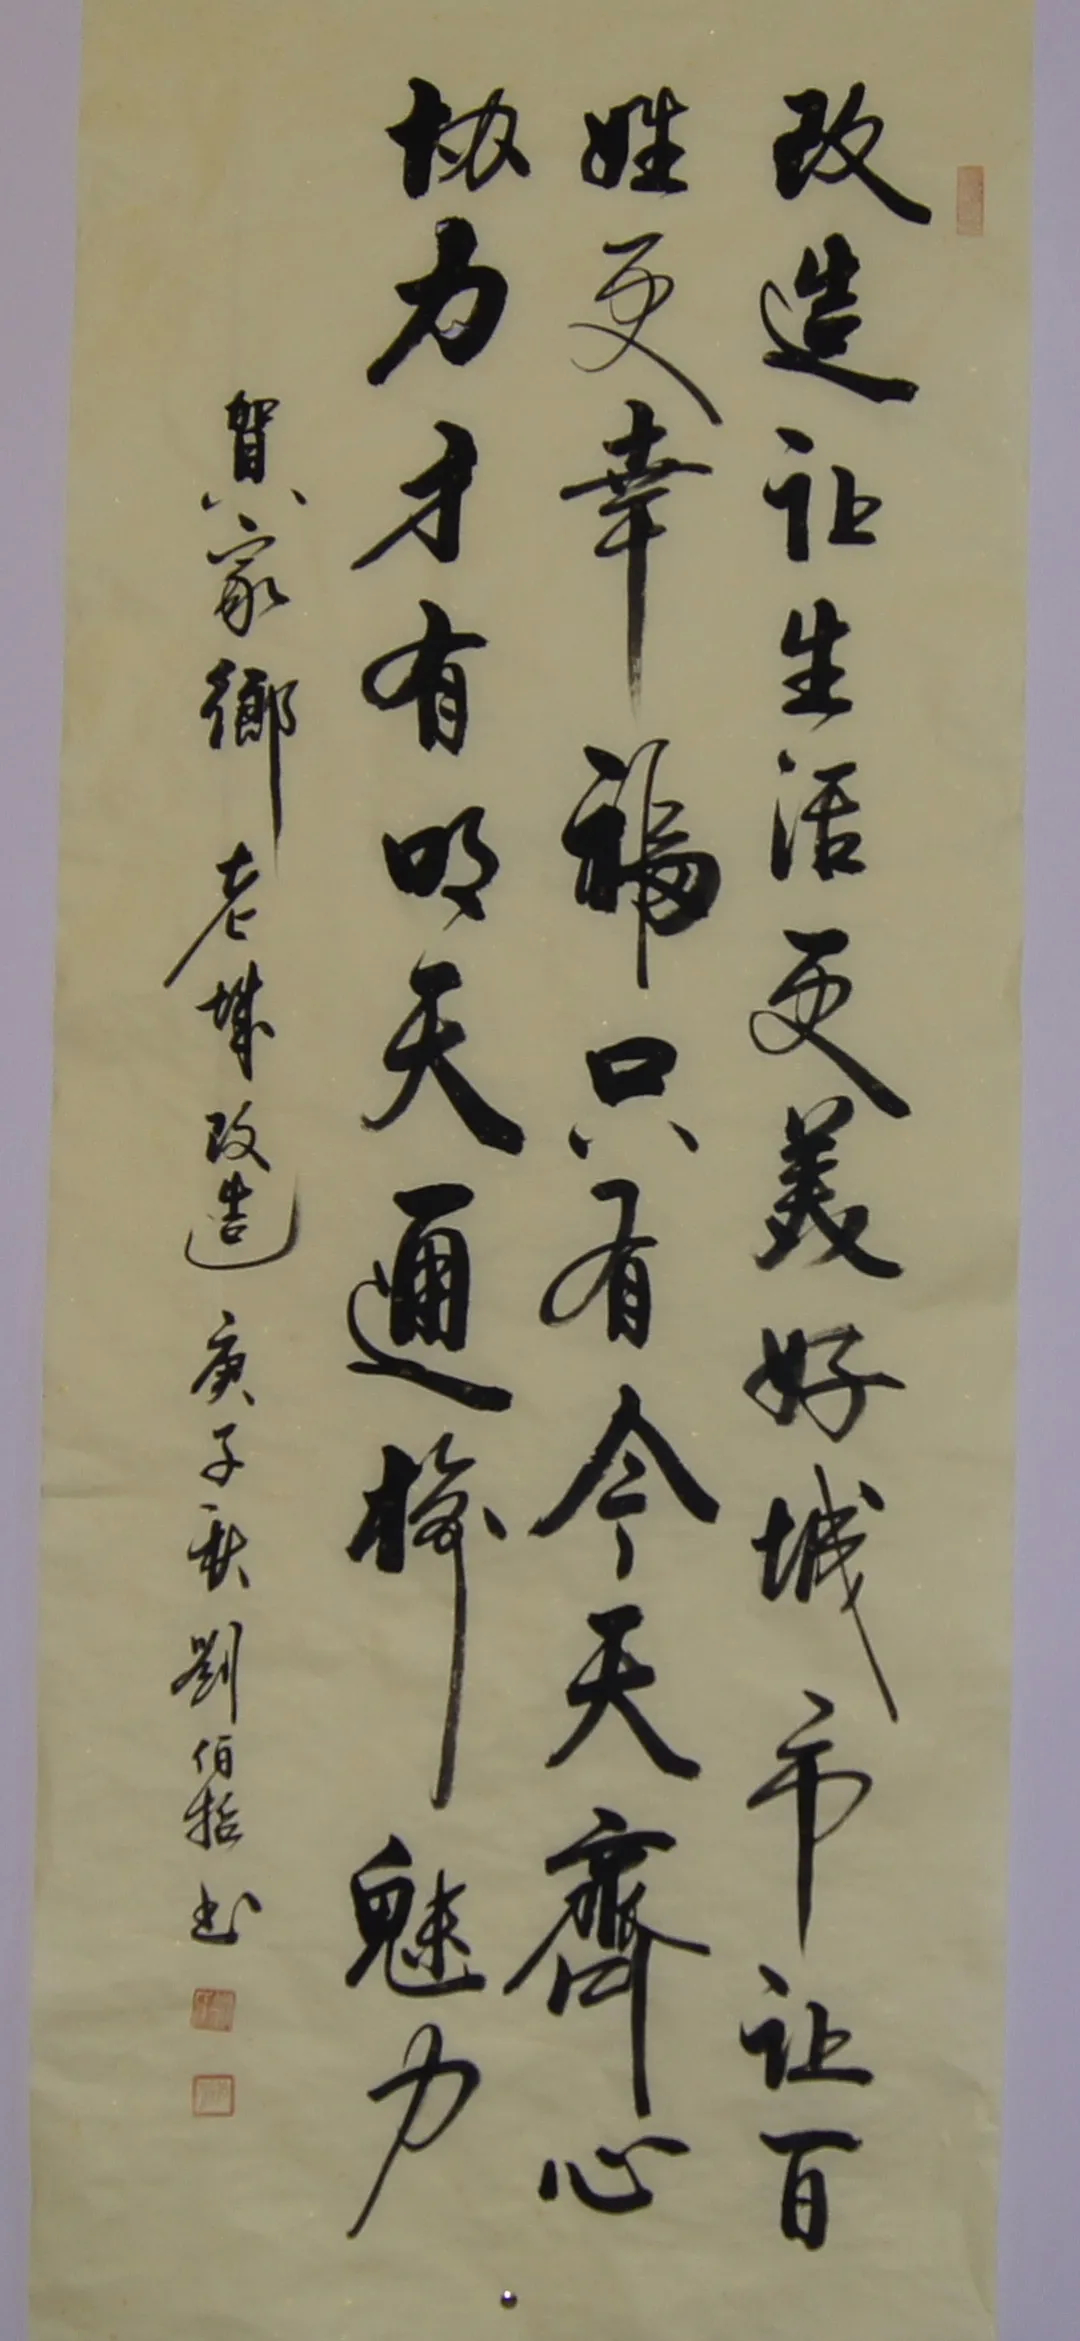 改造让生活更美好城市让百
姓更幸福只有今天齊心
协力才有明天邇桥魅力
賀家鄉老城改造 庚子秋 劉伯哲书